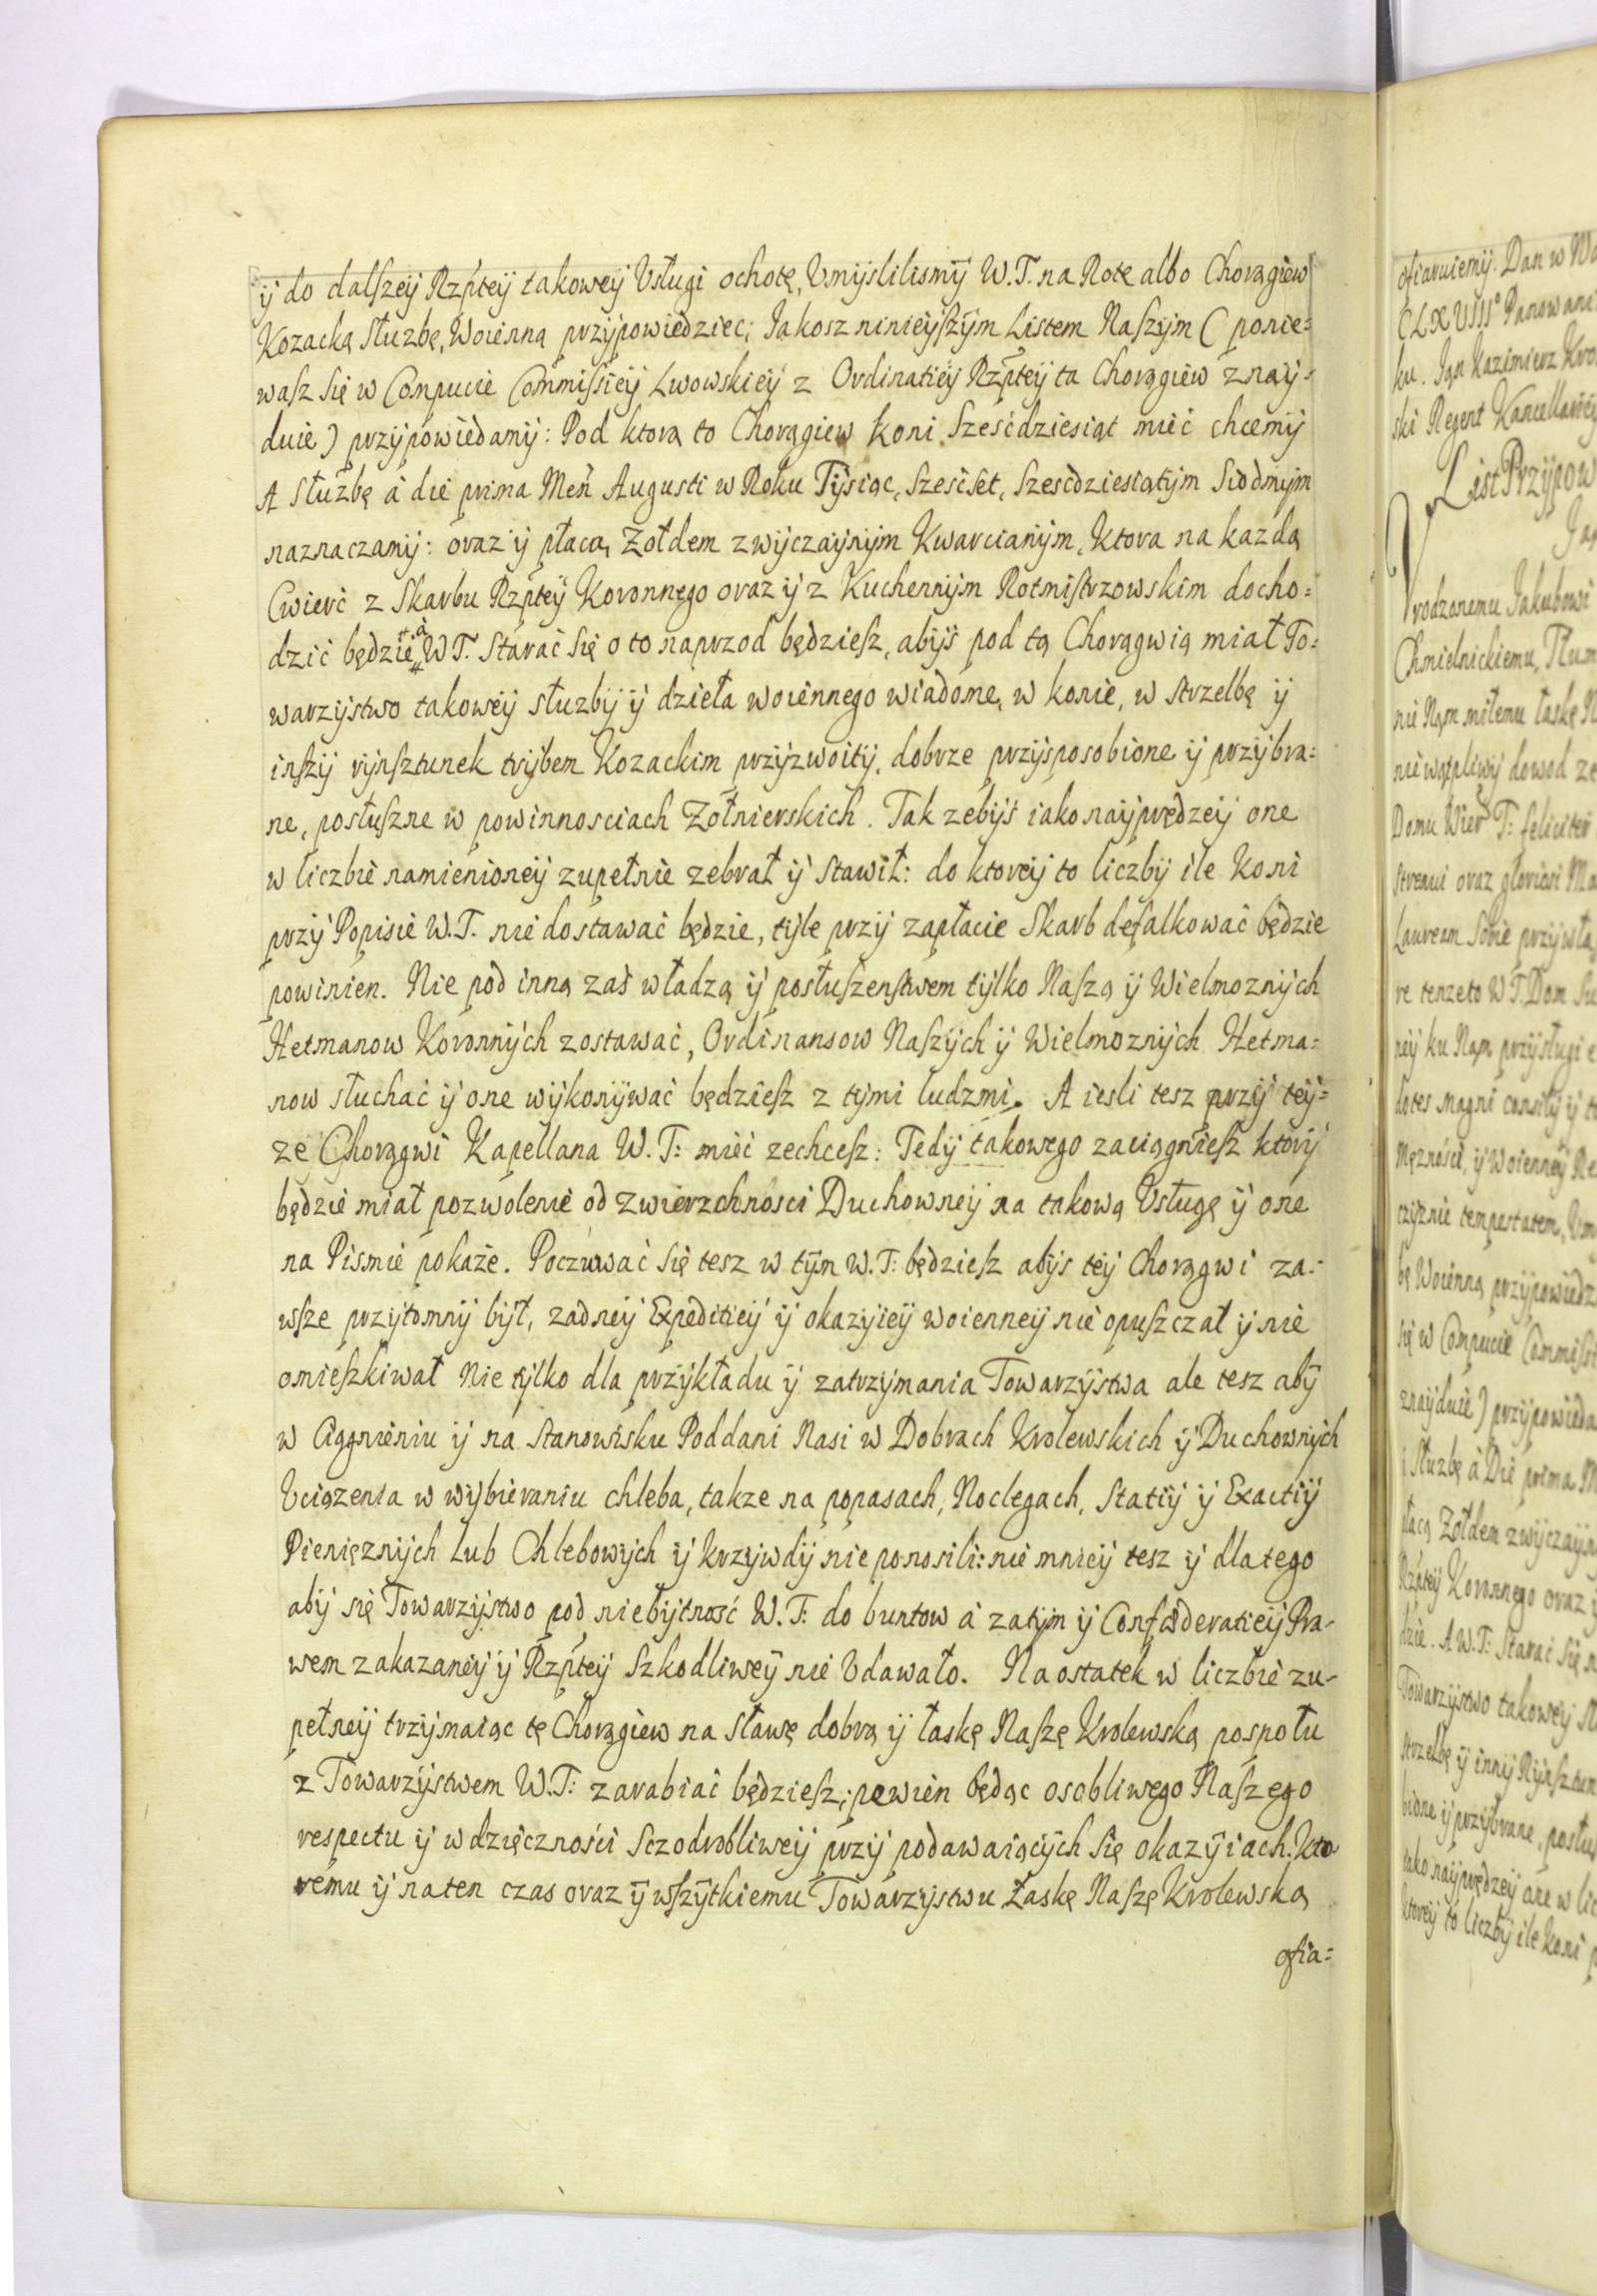 ÿ do dalszeÿ Rzpteÿ takoweÿ Vsługi ochotę, Vmÿslilismÿ W.T. na Rotę albo Chorągiew
Kozacką słuzbę, Woienną przÿpowiedziec; Iakosz ninieÿszÿm Listem Naszÿm (ponie=
wasz się w Compucie Commissieÿ Lwowskieÿ z Ordinatieÿ Rzpteÿ ta Chorągiew znaÿ=
duie) przÿpowiedamÿ: Pod ktorą to Chorągiew koni Sześćdziesiąt mieć chcemÿ
A słuzbę á die prima Men Augusti w Roku Tÿsiąc, Sześćset, Sześćdziesiątÿm Siodmÿm
naznaczamÿ: oraz ÿ płacą Zołdem zwÿczaÿnÿm Kwarcianÿm, ktora na kazdą
Cwierć z Skarbu Rzpteÿ Koronnego oraz ÿ z Kuchennÿm Rotmistrzowskim docho=
dzić będzie à W T. Starać się o to naprzod będziesz, abÿs pod tą Chorągwią miał To=
warzÿstwo takoweÿ słuzbÿ ÿ dzieła woiennego wiadome, w konie, w strzelbę ÿ
inszÿ rÿnsztunek trÿbem Kozackim przÿzwoitÿ, dobrze przÿsposobione ÿ przÿbra=
ne, posłuszne w powinnosciach Zołnierskich. Tak zebÿs iako naÿprędzeÿ one
w liczbie namienioneÿ zupełnie zebrał ÿ Stawił: do ktoreÿ to liczbÿ ile koni
przÿ Popisie W.T. nie dostawać będzie, tÿle przÿ zapłacie Skarb defalkować będzie
powinien. Nie pod inną zaś władzą ÿ posłuszenstwem tÿlko Naszą ÿ Wielmoznÿch
Hetmanow Koronnÿch zostawać, Ordinansow Naszÿch ÿ Wielmoznÿch Hetma=
now słuchać ÿ one wÿkonÿwać będziesz z tÿmi ludzmi. A iesli tesz przÿ teÿ=
ze Chorągwi Kapellana W.T: mieć zechcesz: Tedÿ takowego zaciągniesz ktorÿ
będzie miał pozwolenie od zwierzchnosci Duchowneÿ na takową Vsługę ÿ one
na Pismie pokaże. Poczuwać się tesz w tÿm W.T: będziesz abÿs teÿ Chorągwi za=
wsze przÿtomnÿ bÿł, zadneÿ Expeditieÿ ÿ okazÿieÿ woienneÿ nie opuszczał ÿ nie
omieszkiwał Nie tÿlko dla przÿkładu ÿ zatrzÿmania Towarzÿstwa ale tesz abÿ
w Ciągnieniu ÿ na Stanowisku Poddani Nasi w Dobrach Krolewskich ÿ Duchownÿch
Vciązenia w wÿbieraniu chleba, takze na popasach, Noclegach, Statiÿ ÿ Exactiÿ
Pienięznÿch lub Chlebowÿch ÿ krzÿwdÿ nie ponosili: nie mnieÿ tesz ÿ dla tego
abÿ się Towarzÿstwo pod niebÿtność W.T: do buntow á zatÿm ÿ Confœderatieÿ Pra-
wem zakazaneÿ ÿ Rzpteÿ Szkodliweÿ nie Vdawało. Na ostatek w liczbie zu-
pełneÿ trzÿmaiąc tę Chorągiew na sławę dobrą ÿ łaskę Naszę Krolewską pospołu
z Towarzÿstwem W.T: zarabiać będziesz; pewien będąc osobliwego Naszego
respectu ÿ wdzięczności Sczodrobliweÿ przÿ podawaiącÿch się okazÿiach. Kto
remu ÿ na ten czas oraz ÿ wszÿtkiemu Towarzÿstwu Łaskę Naszę Krolewską
ofia=
ofiaruiemÿ. Dan w
ku. Jan Kazimierz
ski Regent Kancellarieÿ
List Przÿpow
Vrodzonemu Jakubowi
Chmielnickiemu,
nie Nam miłemu łaskę
niewątpliwÿ dowod ze
Domu Wier T: feliciter
Laurem Sobie
re tenzeto W T. Dom
neÿ ku Nam przÿsługi
dotes magni consilÿ ÿ
Męzności, ÿ Woienneÿ
czÿznie tempestatem,
bę Woienną przÿpowiedz
się w Compucie Commissi
znaÿduie) przÿpowieda
i słuzbę à Die prima
Zołdem zwÿczaÿn
Rzpteÿ Koronnego oraz ÿ
dzie. A W.T: Starać się
Towarzÿstwo takoweÿ
strzelbę ÿ innÿ Rÿnsztun
bione ÿ przÿbrane, posłu
iako naÿprędzeÿ one w lic
ktoreÿ to liczbÿ ile koni